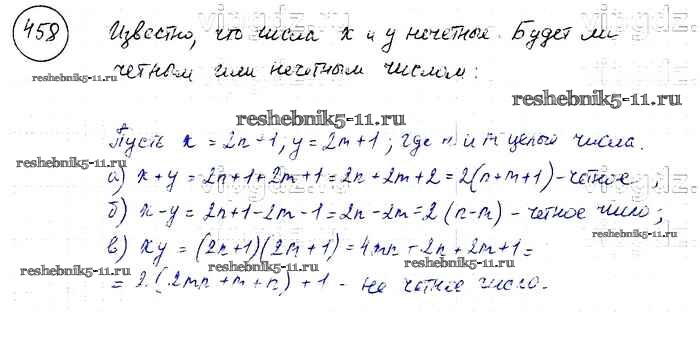 458
Известно, что числа x и y нечетные. Будет ли
четным или нечетным числом:
reshebnik5-11.ru
reshebnik5-11.ru
reshebnik5-11.ru
Пусть x = 2n+1, y = 2m+1, где n и m целые числа.
reshebnik5-11.ru
а) x+y = 2n+1+2m+1 = 2n+2m+2 = 2(n+m+1) - четное;
б) x-y = 2n+1-2m-1 = 2n-2m = 2(n-m) - четное число;
в) xy = (2n+1)(2m+1) = 4mn+2n+2m+1 =
reshebnik5-11.ru
reshebnik5-11.ru
= 2(2mn+m+n)+1 - не четное число.
reshebnik5-11.ru